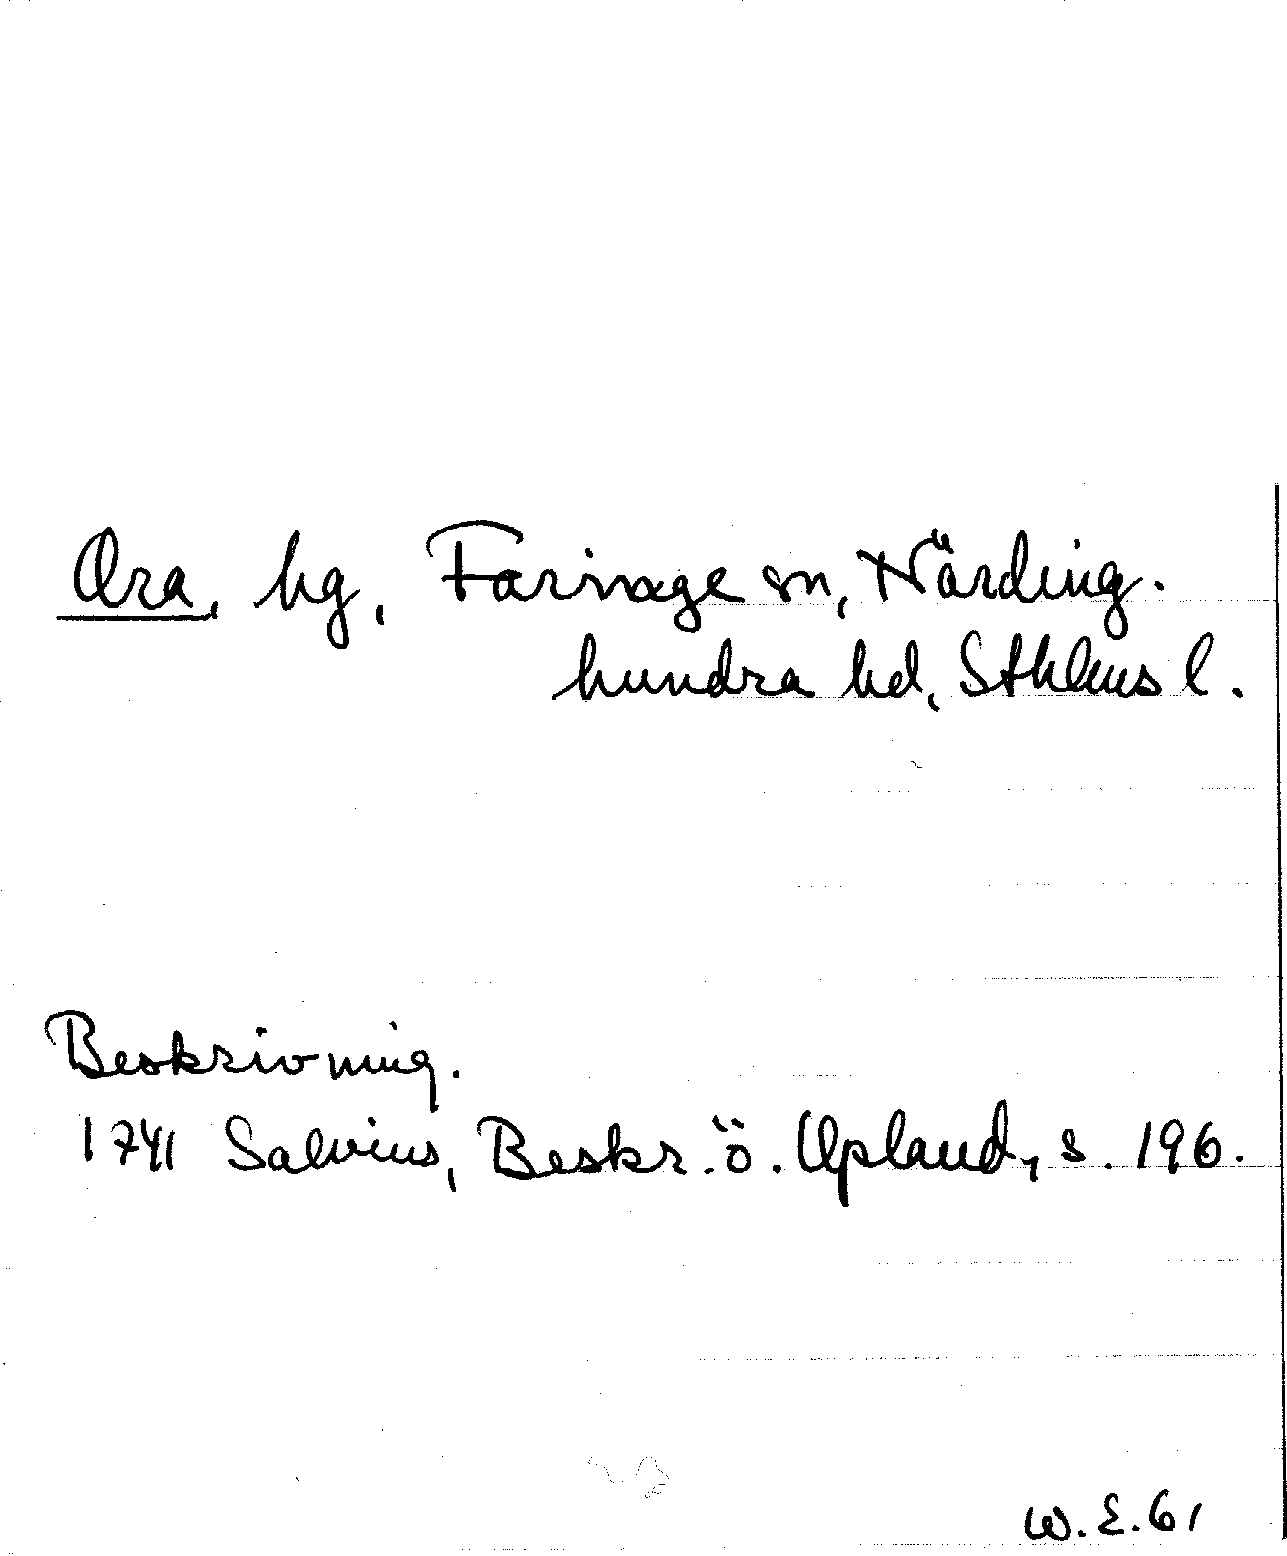 Ora, hg, Farinage sn, Närding-
hundra hd, Sthlms l.
Beskrivning.
1741 Salvius, Beskr. ö. Upland, s. 196.
W. E. 61